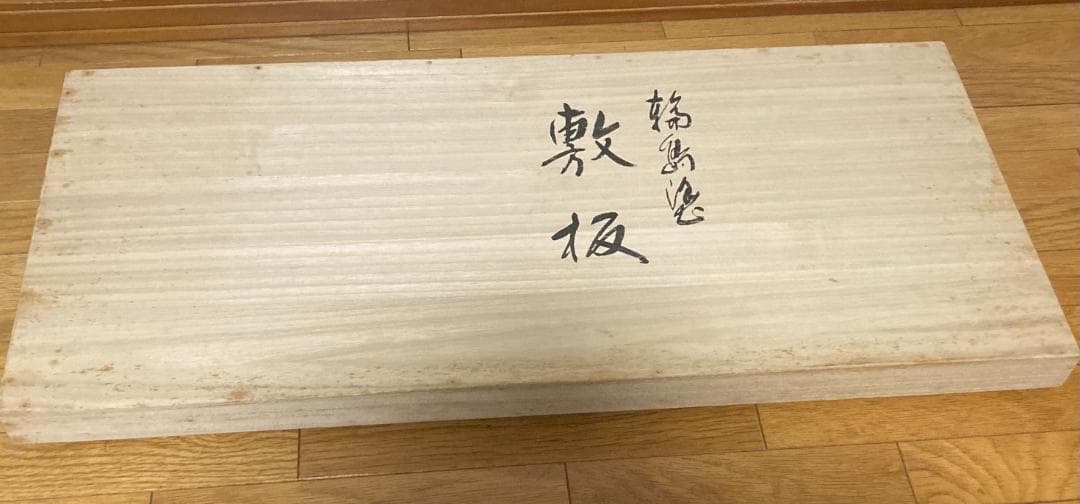 輪島塗
敷板